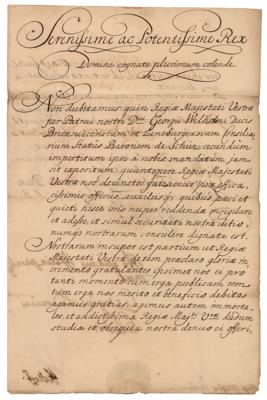 Serenissime ac Potentissime Rex
Domine cognate plurimum colende
Non dubitamus quin Regiæ Majestati Vestræ
per Patrui nostri Dni Georgii Wilhelmi Ducis
Brunsvicensium et Luneburgensium Consilia
rium Status Baronem de Schüz secundum
impertitum ipsi a nobis mandatum jam
sit expositum quantopere Regiæ Majestati
Vestræ nos devinctos fateamur pro offica
cissimis officiis, auxiliisque quibus paci et
quieti hisce oris reddendæ invigilare
et adesse, et simul securitati nostræ ditio
numque nostrarum consulere dignata est.
Nostrarum insuper est partium ut Regiæ
Majestati Vestræ de tam præclaro gloriæ in
cremento gratulantes ipsimet nos ei pro
tanto momento cum erga publicam rem
tum erga nos merito et beneficio debitas
agamus gratias, agimus autem immorta
les, et addictissima Regiæ Majti Vræ dudum
studia et obsequia nostra denuo ei offeri,